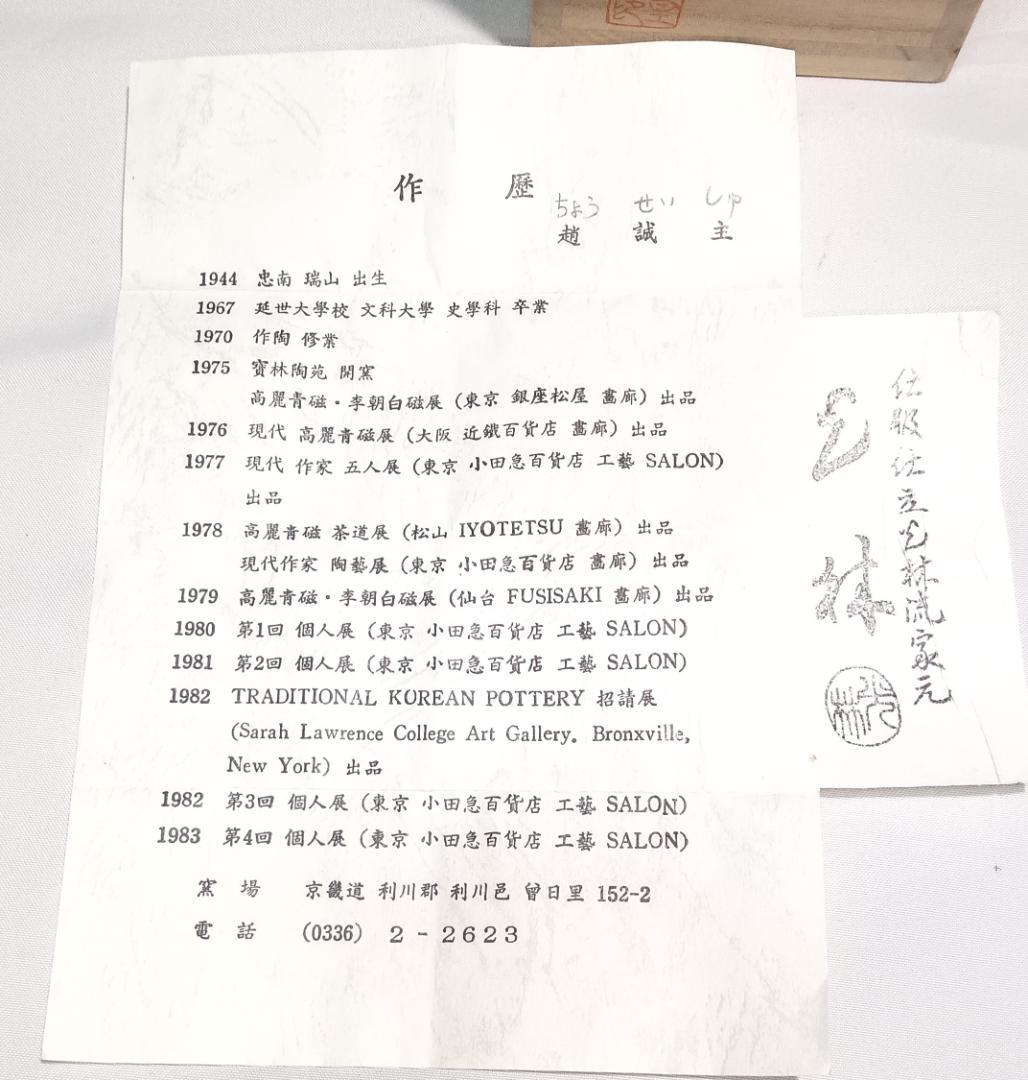 作 歷
ちょう せい しゅ
趙 誠 主
1944 忠南 瑞山 出生
1967 延世大學校 文科大學 史學科 卒業
1970 作陶 修業
1975 寶林陶苑 開窯
高麗青磁・李朝白磁展 (東京 銀座松屋 畵廊) 出品
1976 現代 高麗青磁展 (大阪 近鐵百貨店 畵廊) 出品
1977 現代 作家 五人展 (東京 小田急百貨店 工藝 SALON)
出品
1978 高麗青磁 茶道展 (松山 IYOTETSU 畵廊) 出品
現代作家 陶藝展 (東京 小田急百貨店 畵廊) 出品
1979 高麗青磁・李朝白磁展 (仙台 FUSISAKI 畵廊) 出品
1980 第1回 個人展 (東京 小田急百貨店 工藝 SALON)
1981 第2回 個人展 (東京 小田急百貨店 工藝 SALON)
1982 TRADITIONAL KOREAN POTTERY 招請展
(Sarah Lawrence College Art Gallery. Bronxville,
New York) 出品
1982 第3回 個人展 (東京 小田急百貨店 工藝 SALON)
1983 第4回 個人展 (東京 小田急百貨店 工藝 SALON)
窯 場 京畿道 利川郡 利川邑 曾日里 152-2
電 話 (0336) 2-2623
仕服仕立光林流家元
光林
光林